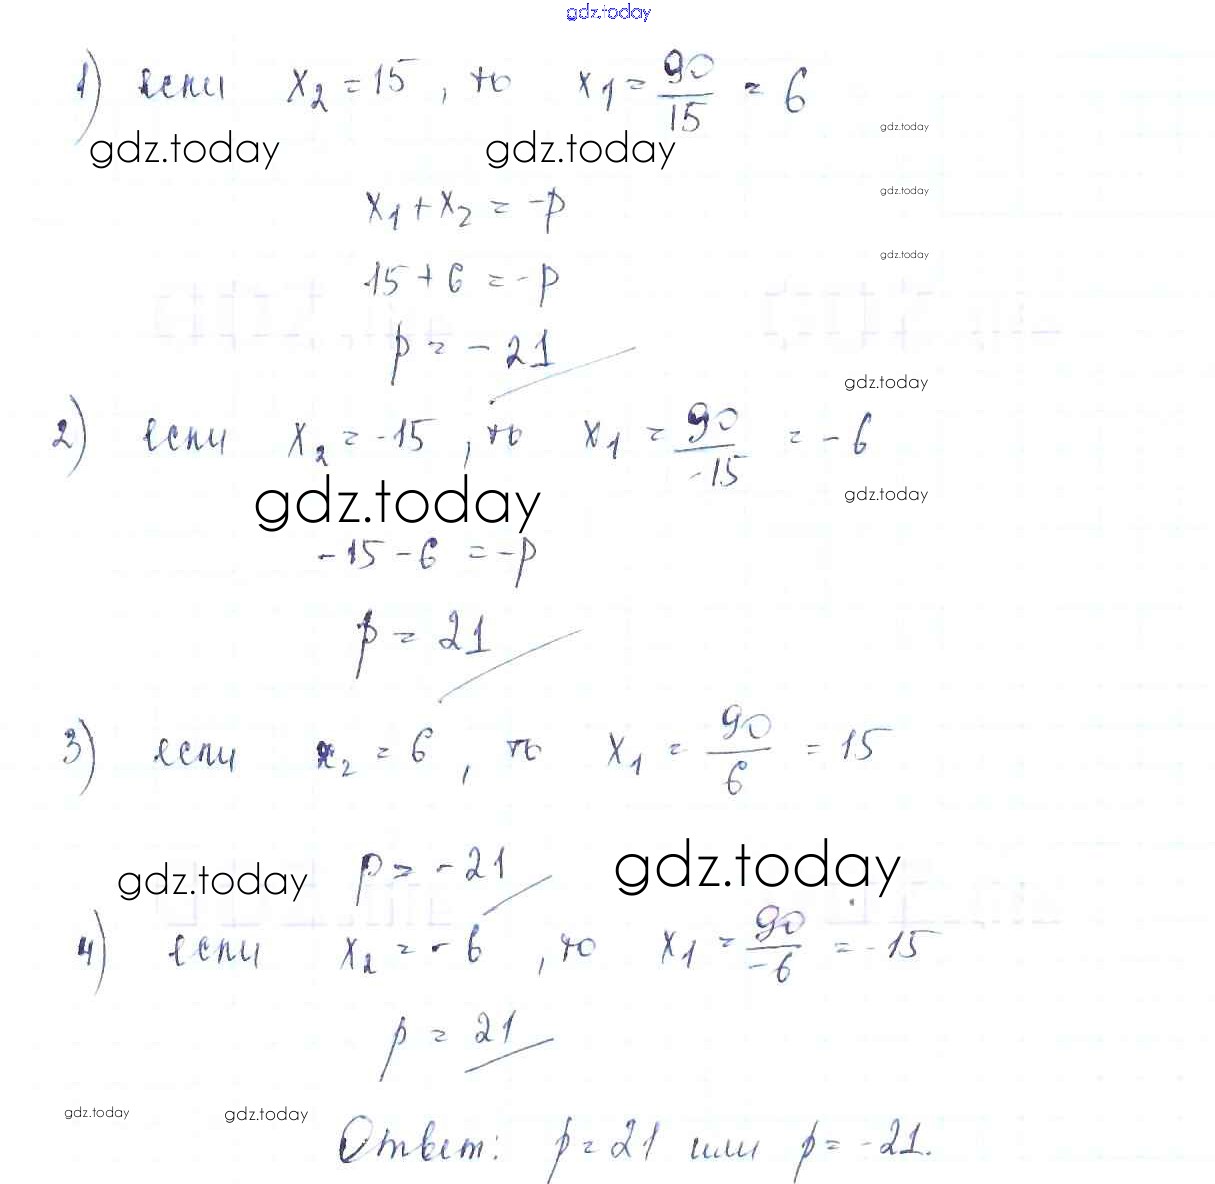 gdz.today
1) если x₂ = 15, то x₁ = 90/15 = 6
gdz.today
gdz.today gdz.today
gdz.today
x₁ + x₂ = -p
gdz.today
15 + 6 = -p
p = -21
gdz.today
2) если x₂ = -15, то x₁ = 90/-15 = -6
gdz.today gdz.today
-15 - 6 = -p
p = 21
3) если x₂ = 6, то x₁ = 90/6 = 15
gdz.today p = -21 gdz.today
4) если x₂ = -6, то x₁ = 90/-6 = -15
p = 21
gdz.today gdz.today
Ответ: p = 21 или p = -21.